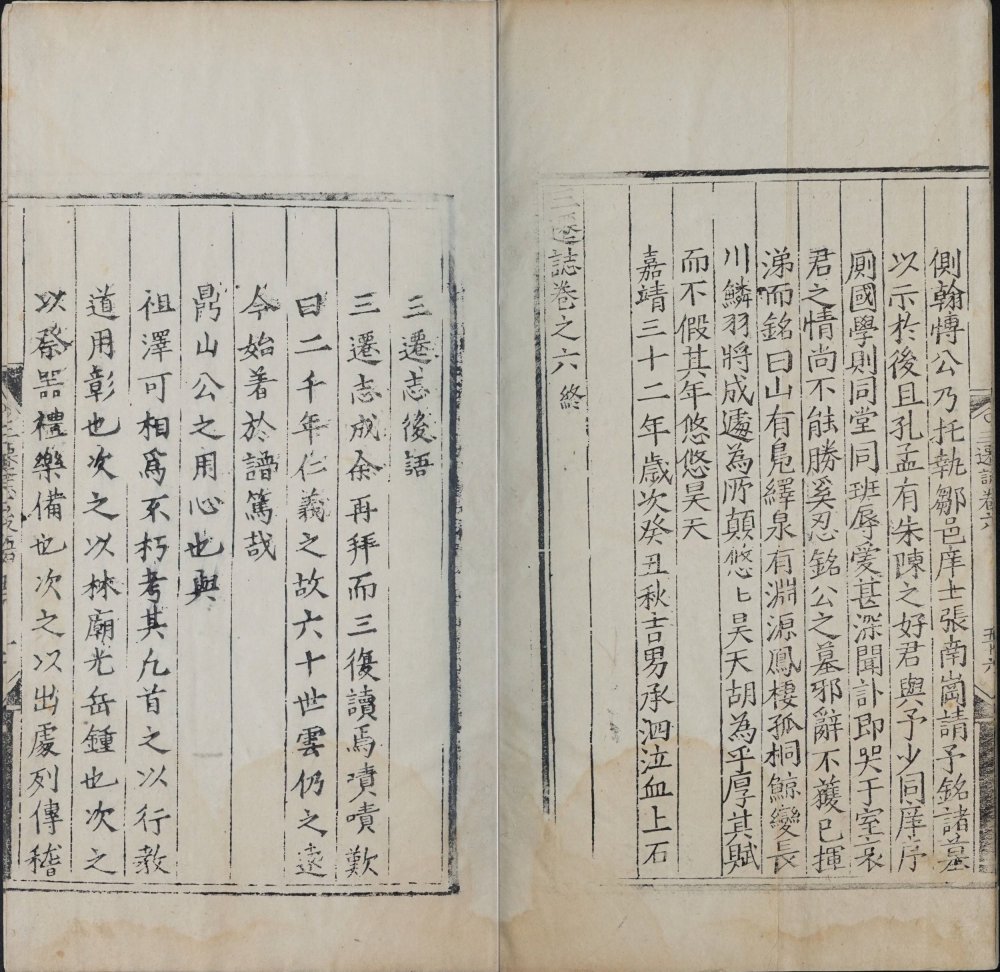 側翰愽公乃托執鄒邑庠士張南崗請予銘諸墓
以示於後且孔孟有朱陳之好君與予少同庠序
厠國學則同堂同班辱愛甚深聞訃即哭于室哀
君之情尚不能勝奚忍銘公之墓邪辭不獲已揮
涕而銘曰山有鳧繹泉有淵源鳳棲孤桐鯨變長
川鱗羽將成遽為所顛悠〻昊天胡為乎厚其賦
而不假其年悠悠昊天
嘉靖三十二年歲次癸丑秋吉男承泗泣血上石
三遷誌卷之六終
三遷誌卷六
三遷志後語
三遷志成余再拜而三復讀焉嘖嘖歎
曰二千年仁義之故六十世雲仍之遠
今始著於譜篤哉
鼎山公之用心也與
祖澤可相爲不朽考其凡首之以行教
道用彰也次之以林廟光岳鍾也次之
以祭器禮樂備也次之以出處列傳稽